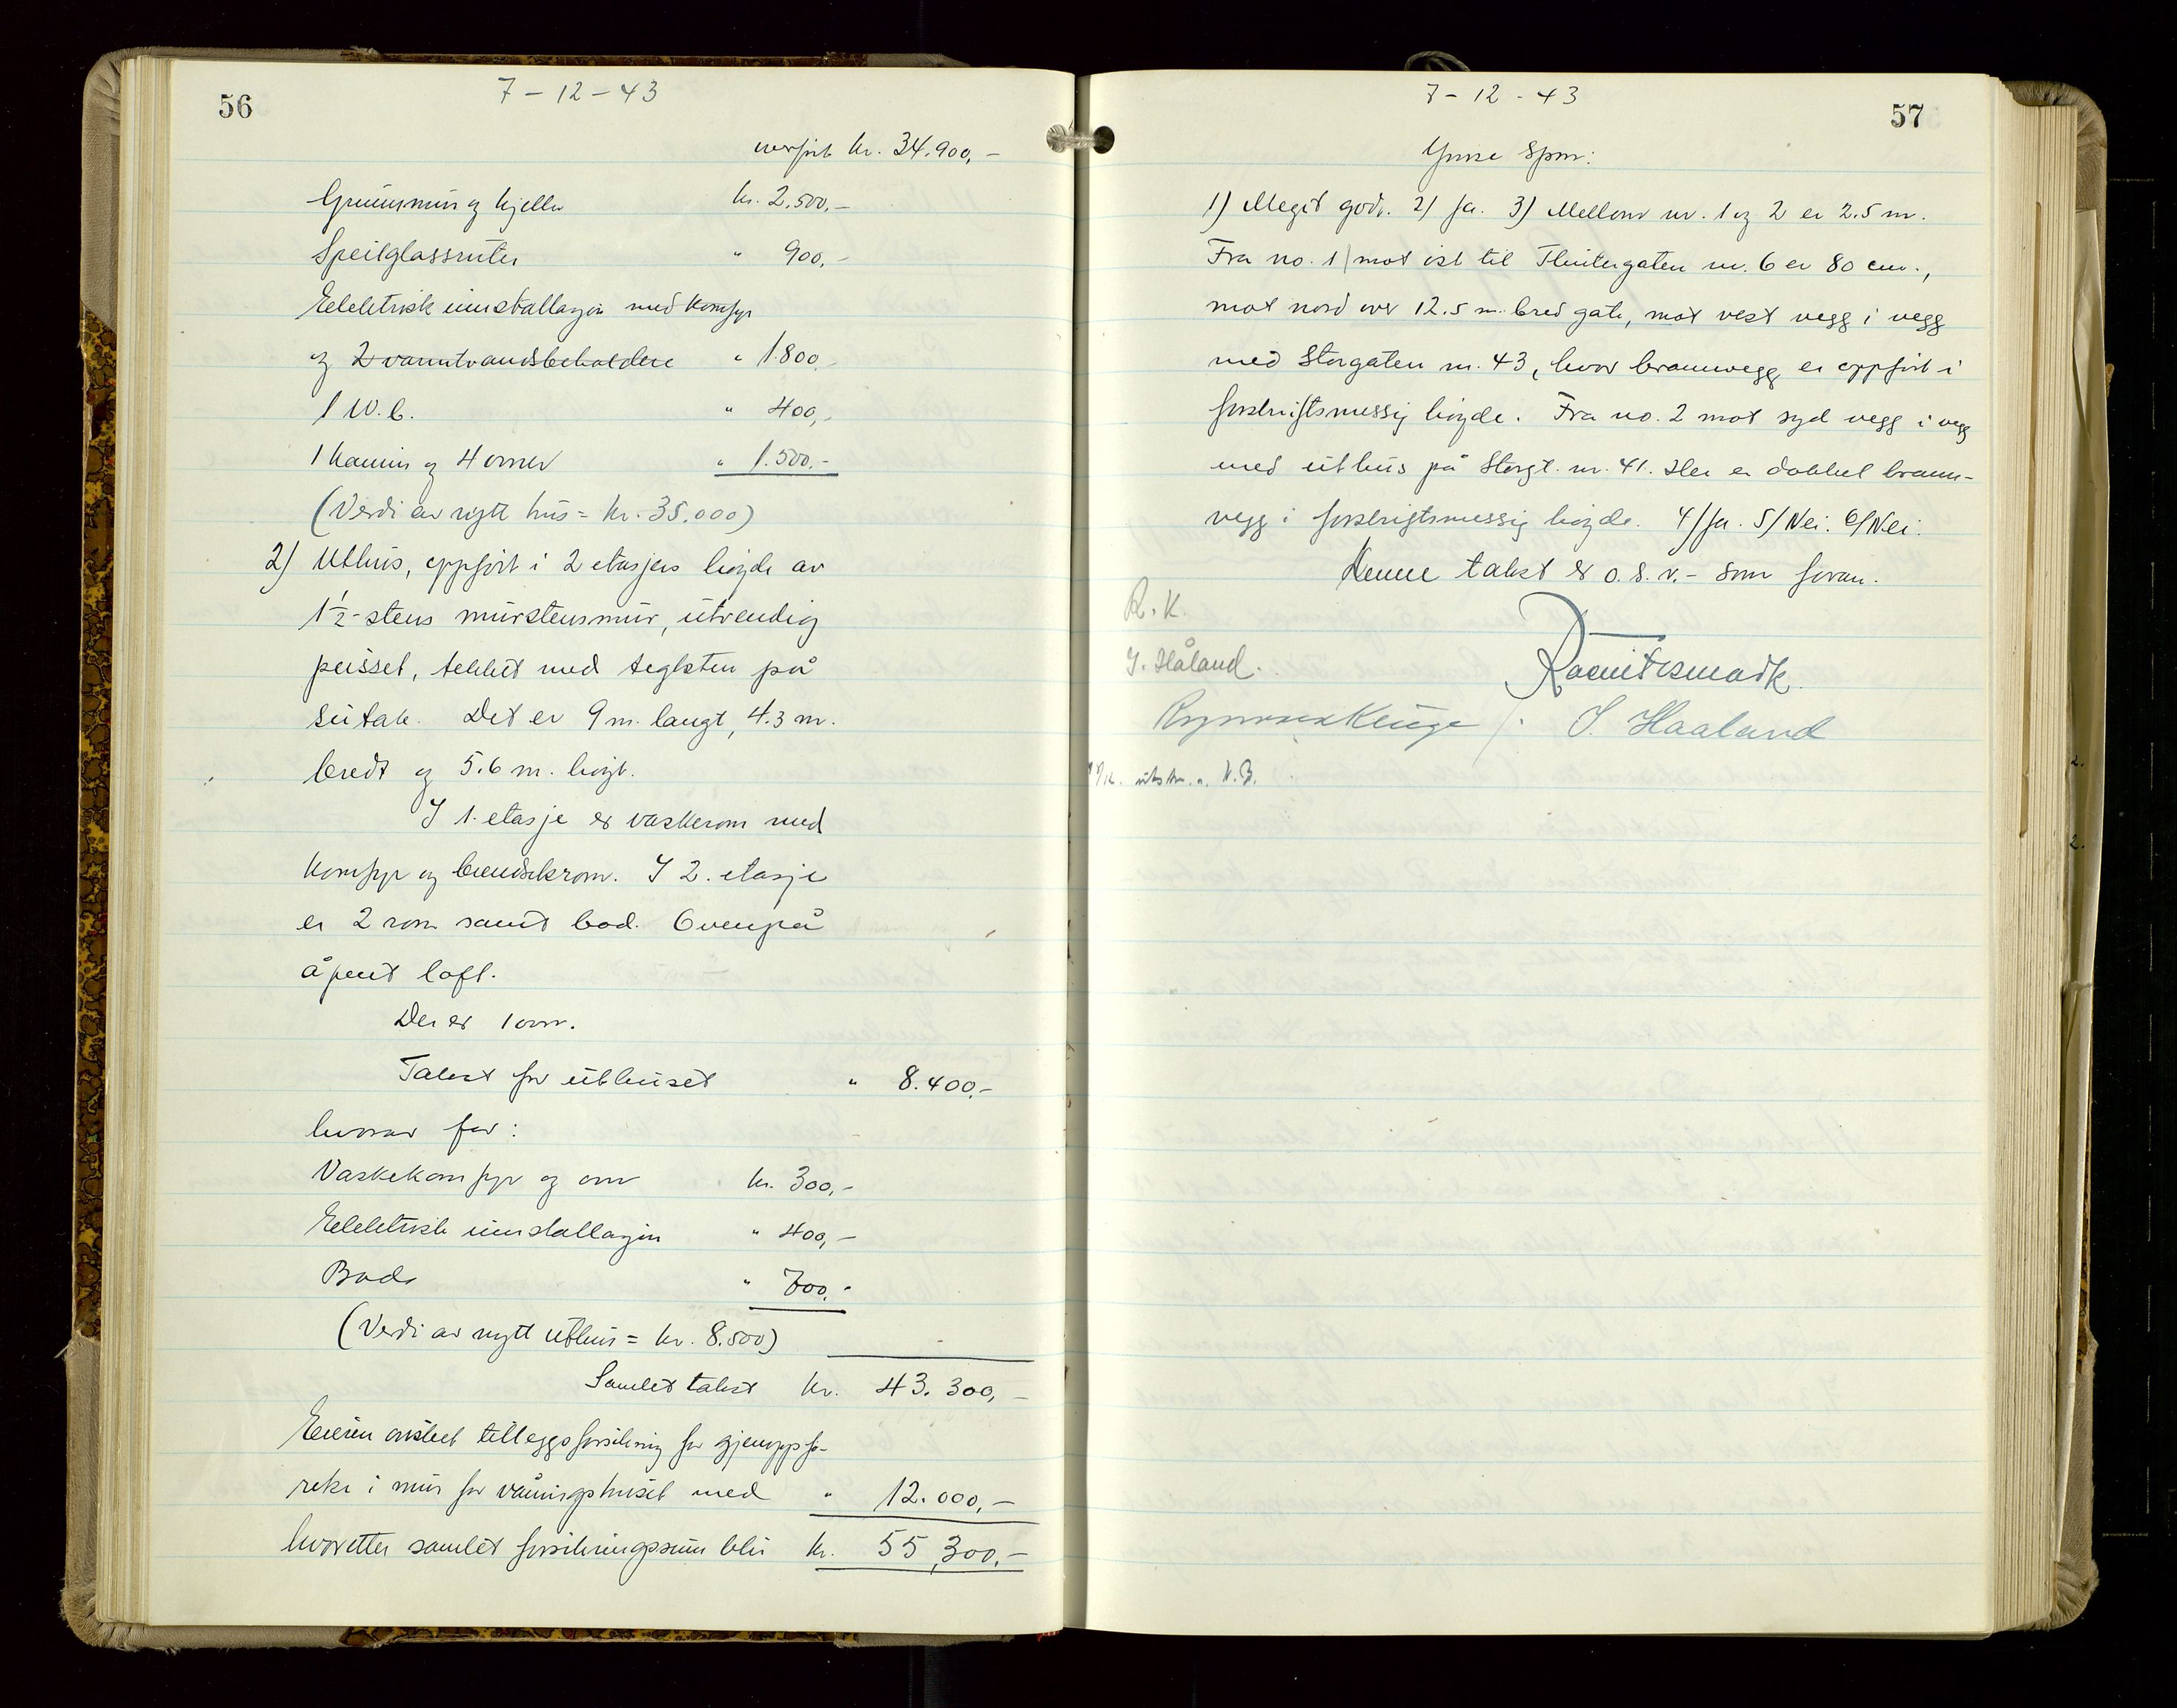 56
7 – 12 – 43
overført kr. 34.900,–
Grunnmur og kjeller kr. 2.500,–
Speilglassruter " 900,–
Eelektrisk innstallasjon med komfyr
og 2 varmtvandsbeholdere " 1.800,–
1 W.C. " 400,–
1 kamin og 4 ovner " 1.500,–
(Verdi av nytt hus = kr. 35.000)
2) Uthus, oppført i 2 etasjers høyde av
1½-stens murstensmur, utvendig
pusset, tekket med teglsten på
sutak. Det er 9 m. langt, 4.3 m.
bredt og 5.6 m. høyt.
I 1. etasje er vaskerom med
komfyr og brendselsrom. I 2. etasje
er 2 rom samt bod. Ovenpå
åpent loft.
Der er 1 ovn.
Takst for uthuset " 8.400,–
hvorav for:
Vaskekomfyr og ovn kr. 300,–
Eelektrisk innstallasjon " 400,–
" 700,–
(Verdi av nytt uthus = kr. 8.500)
Samlet takst kr. 43.300,–
Eieren ønsket tilleggsforsikring for gjenoppfø-
relse i mur for våningshuset med " 12.000,–
hvoretter samlet forsikringssum blir kr. 55,300.–
57
7 – 12 – 43
Ymse Spm:
1) Meget god. 2) Ja. 3) Mellom nr. 1 og 2 er 2.5 m.
Fra no. 1 mot øst til Flintergaten nr. 6 er 80 cm.,
mot nord over 12.5 m. bred gate, mot vest vegg i vegg
med Storgaten nr. 43, hvor brannvegg er oppført i
forskriftsmessig høyde. Fra no. 2 mot syd vegg i vegg
med uthus på Storgt. nr. 41. Her er dobbel brann-
vegg i forskriftsmessig høyde. 4/ Ja. 5/ Nei. 6/ Nei.
Denne takst er o.s.v.– som foran.
R.K.
I. Håland.
I. Haaland